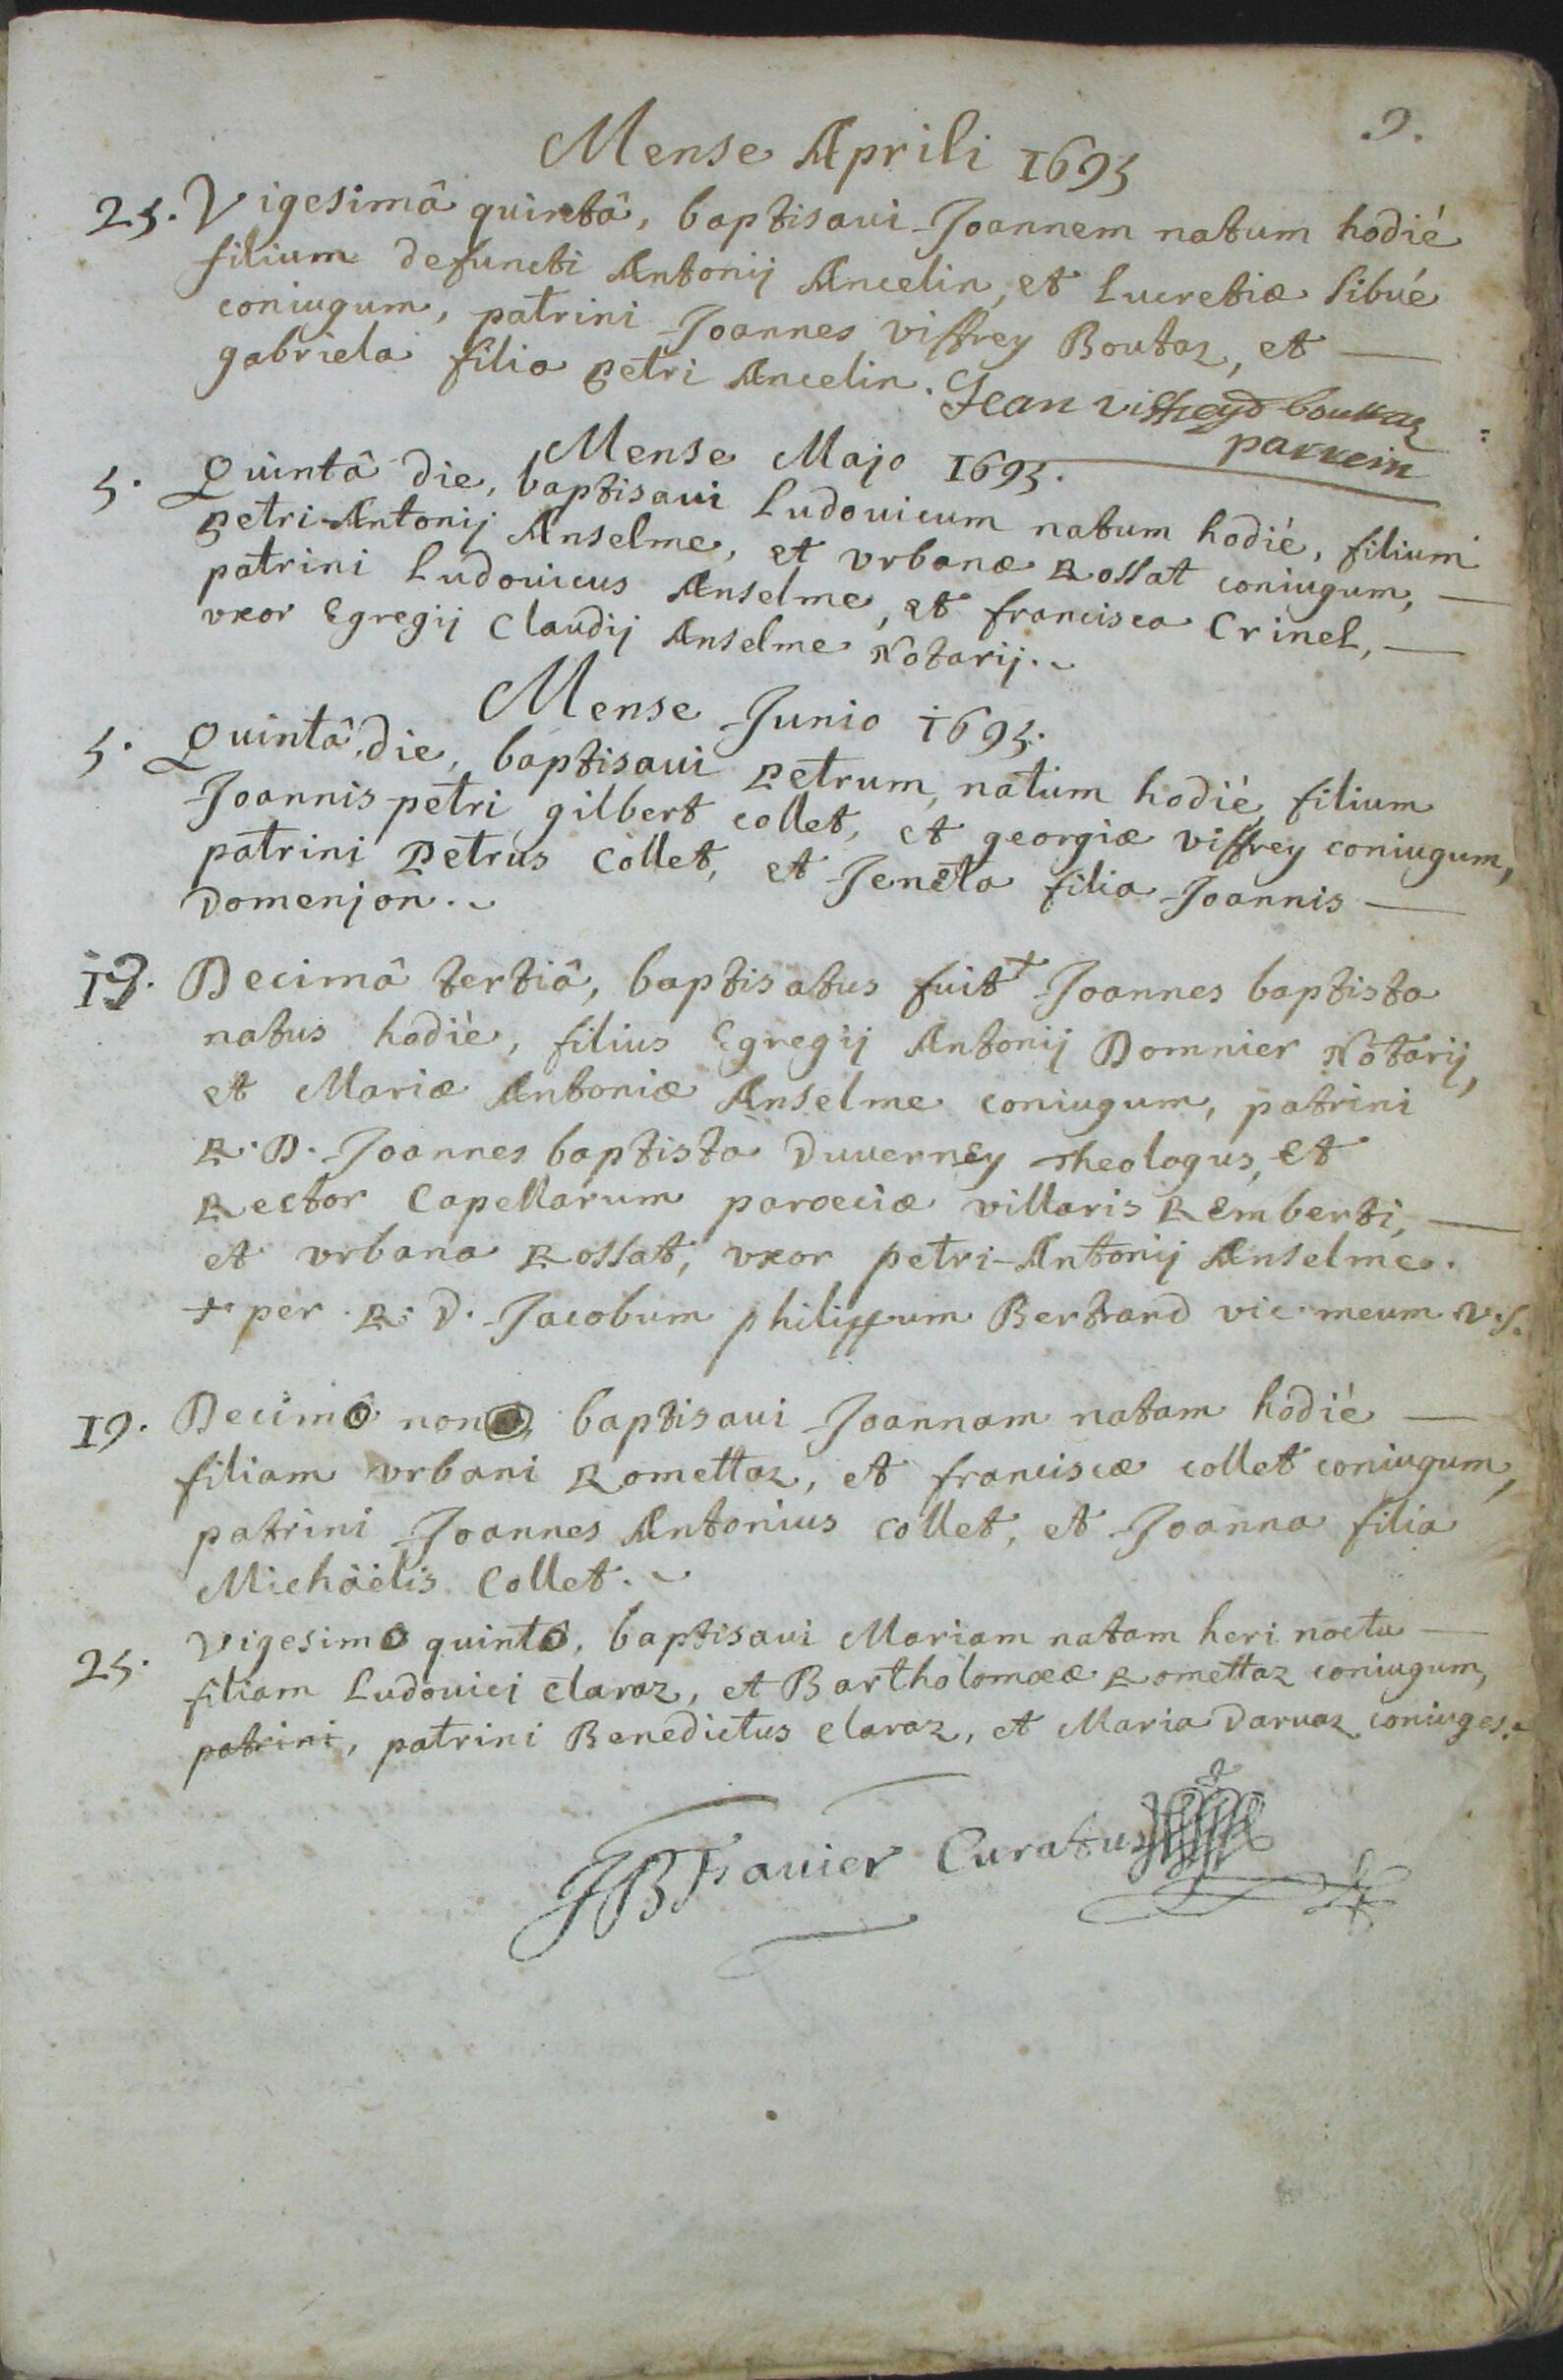 9.
Mense Aprili 1695
25. Vigesimâ quintâ, baptisaui Joannem natum hodié
filium defuncti Antonij Ancelin, et Lucretiæ Sibué
coniugum, patrini Joannes Viffrey Boutaz, et —
gabriela filia petri Ancelin. Jean viffreyd bouttaz
parrein
Mense Majo 1695.
5. Quintâ die, baptisaui Ludouicum natum hodié, filium
petri-Antonij Anselme, et Vrbanæ Rossat coniugum, —
patrini Ludouicus Anselme, et francisca Crinel, —
vxor Egregij Claudij Anselme Notarij.
Mense Junio 1695.
5. Quintâ die, baptisaui Petrum, natum hodié, filium
Joannis petri gilbert collet, et georgiæ viffrey coniugum,
patrini Petrus Collet, et Jeneta filia Joannis —
Domenjon.
13. Decimâ tertiâ, baptisatus fuit + Joannes baptista
natus hodiè, filius Egregij Antonij Domnier Notarij,
et Mariæ Antoniæ Anselme coniugum, patrini
R. D. Joannes baptista Duuerney Theologus, et
Rector Capellarum paroeciæ villaris Remberti, —
et vrbana Rossat, vxor petri-Antonij Anselme.
+ per R. D. Jacobum philippum Bertrand vic. meum
19. Decimo nono, baptisaui Joannam natam hodié —
filiam vrbani Romettaz, et franciscæ collet coniugum,
patrini Joannes Antonius Collet, et Joanna filia
Michäelis Collet.
25. Vigesimo quinto, baptisaui Mariam natam heri noctu —
filiam Ludouici Claraz, et Bartholomææ Romettaz coniugum,
patrini, patrini Benedictus Claraz, et Maria Daruaz coniuges.
JB Frauier Curatus